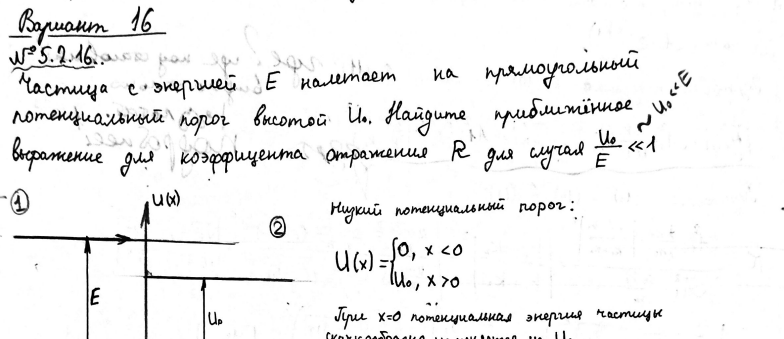 Вариант 16
№5.2.16.
Частица с энергией E налетает на прямоугольный
потенциальный порог высотой U₀. Найдите приближённое
выражение для коэффицента отражения R для случая U₀/E ≪1 ~ U₀≪E
①
U(x)
②
E
U₀
Низкий потенциальный порог:
U(x)={0, x<0
U₀, x>0
При x=0 потенциальная энергия частицы